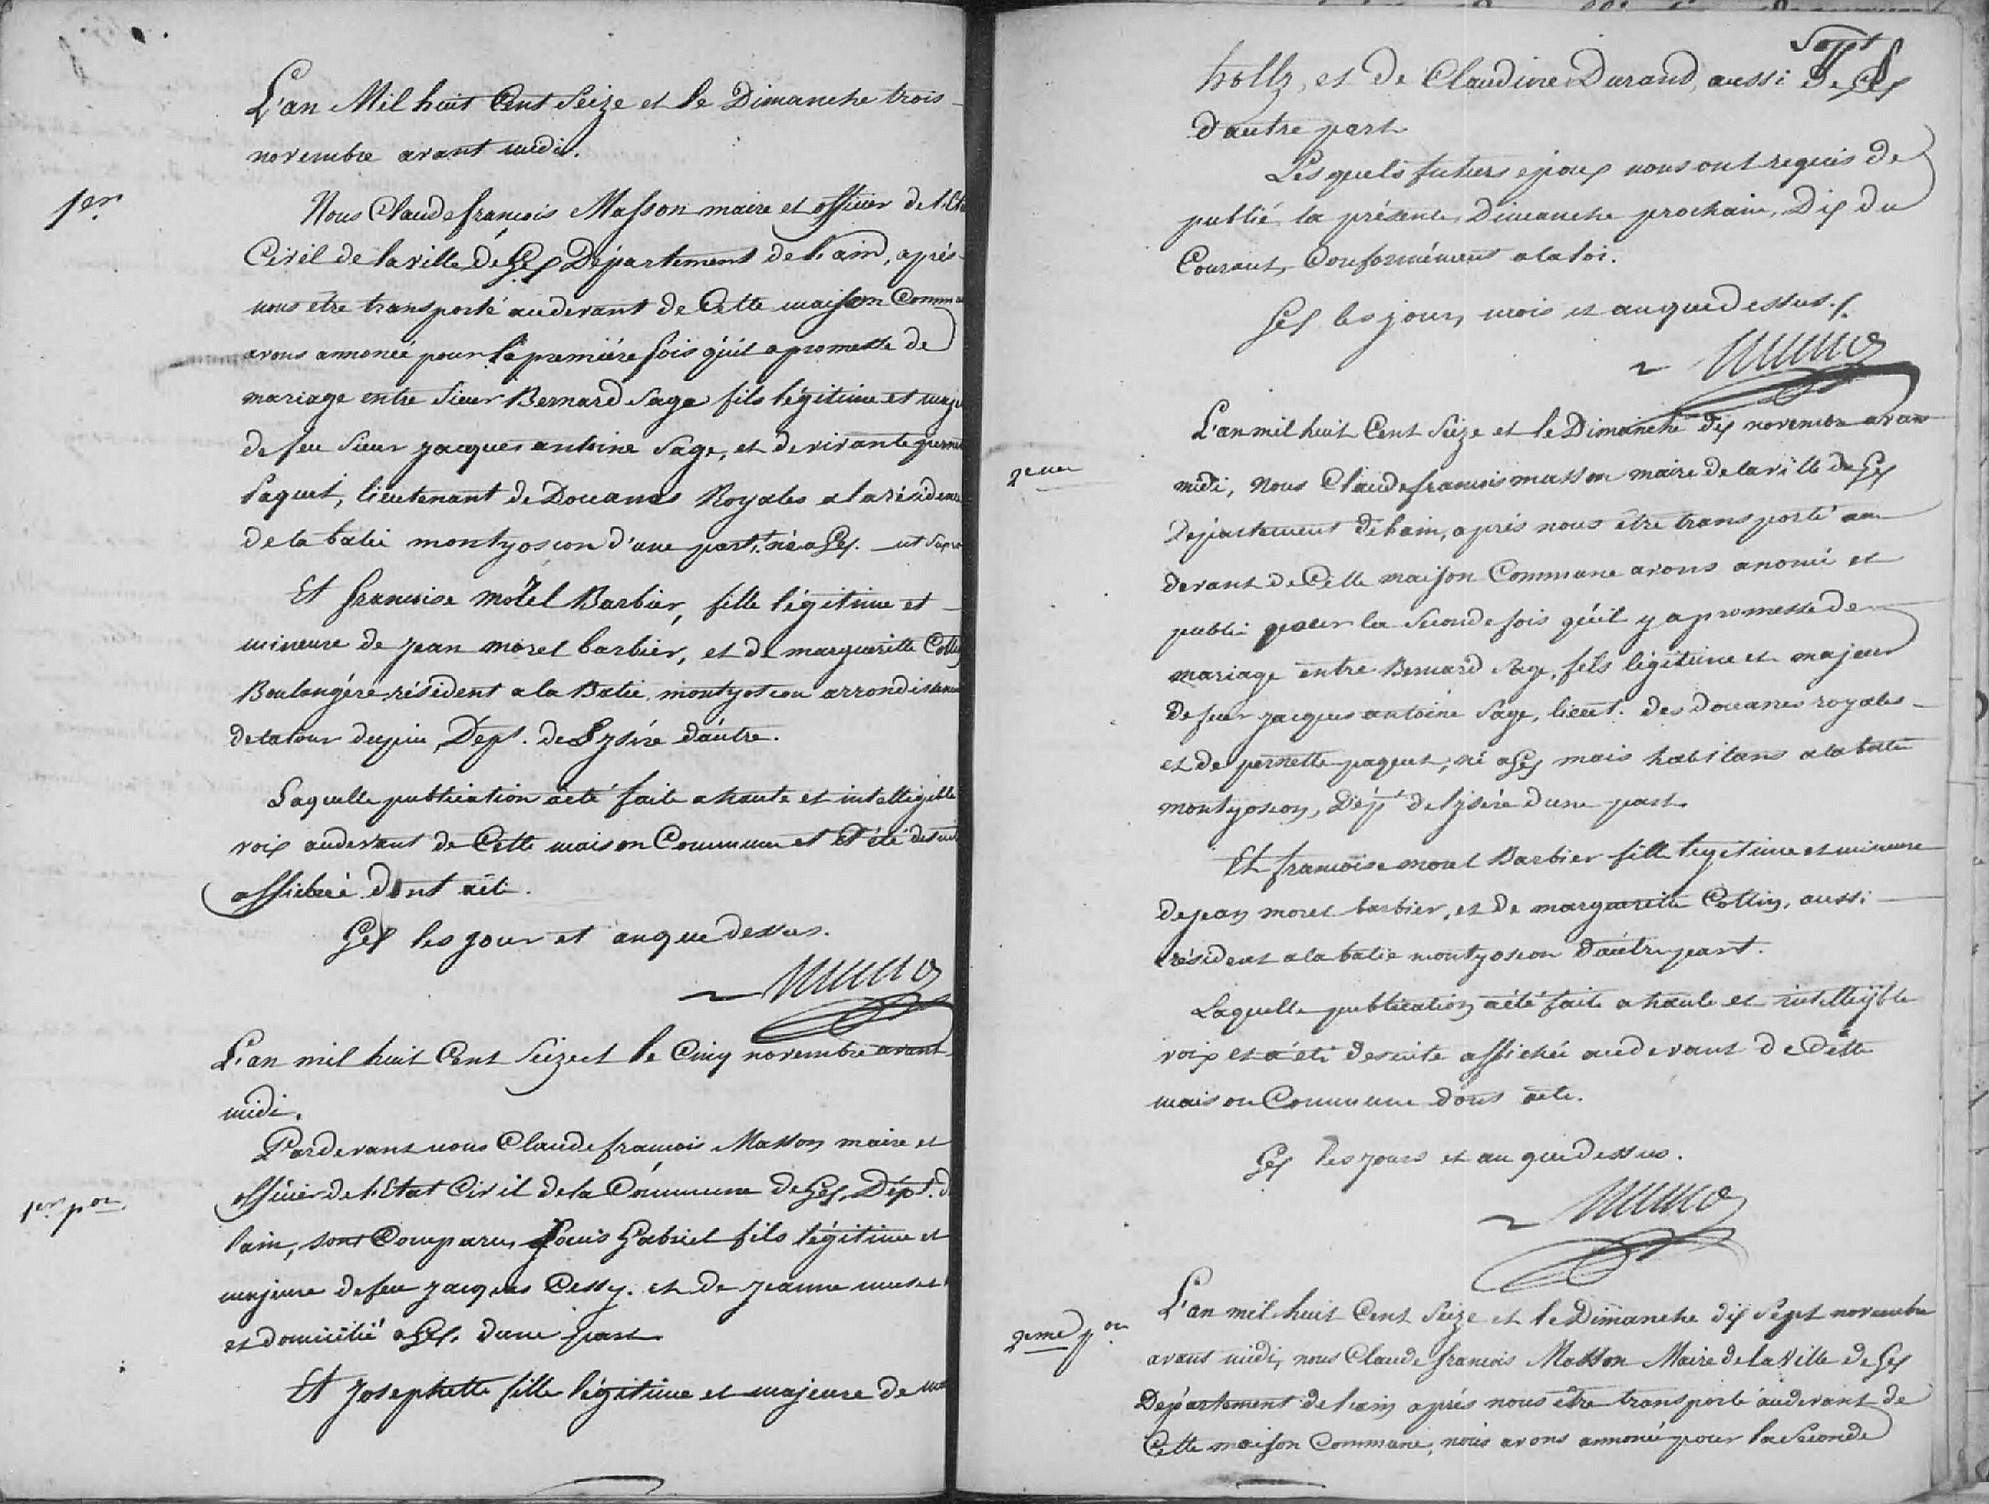 L'an Mil huit Cent Seize et le Dimanche trois
novembre avant midi.
1er
Nous Claude françois Masson maire et officier de l'Eta
Civil de la ville de Gex Département de l'ain, après
nous être transporté audevant de Cette maison Commu
avons annoncé pour la première fois qu'il a promesse de
mariage entre Sieur Bernard Sage fils légitime et maje
de feu Sieur jacques antoine Sage, et de vivante perne
Paquet, lieutenant de Douanes Royales a la résidence
de la batie montgascon d'une part, né a Gex. ut Supra
Et françoise morel Barbier, fille légitime et
mineure de jean morel barbier, et de marguerite Coll
Boulangère résident a la Batie montgascon arrondissem
de la tour dupin, Dépt. de Lysère d'autre.
Laquelle publication a été faite a haute et intelligible
voix audevant de Cette maison Commune et Et été de suit
affichée dont acte.
Gex les jour et an que dessus.
L'an mil huit Cent Seize et le Cinq novembre avant
midi.
Pardevant nous Claude françois Masson maire et
officier de l'Etat Civil de la Commune de Gex, Dépt. d
1er pon
l'ain, sont Comparu, Louis Gabriel fils légitime et
majeure de feu jacques Cessy. et de jeanne
et domicilié a Gex. d'une part
Et josephette fille légitime et majeure de
Sept
et de Claudine Durand, aussi de Gex
d'autre part
Les quels futurs epoux nous ont requis de
publié la présente, Dimanche prochain, Dix du
Courant, Conformément a la loi.
Gex les jour, mois et an que dessus.
L'an mil huit Cent Seize et le Dimanche dix novembre avant
2eme
midi, Nous Claude francois masson maire de la ville de Gex
Département de l'ain, après nous être transporté au
devant de Cette maison Commune avons anoncé et
publié pour la Seconde fois qu'il y a promesse de
mariage entre Bernard Sage, fils légitime et majeur
de feu jacques antoine Sage, lieut. des douanes royales
et de pernette paquet, né a Gex mais habitans a la batie
montgascon, Dépt. de lysère d'une part
Et francoise morel Barbier fille legitime et mineure
de jean morel barbier, et de marguerite Collin, aussi
résident a la batie montgascon d'autre part.
Laquelle publication a été faite a haute et intelligible
voix et a été de suite affichée au devant de Cette
maison Commune dont acte.
Gex les jours et an que dessus.
L'an mil huit Cent Seize et le Dimanche dix Sept novembre
2eme pon
avant midi, nous Claude francois Masson Maire de la Ville de Gex
Département de l'ain après nous être transporté audevant de
Cette maison Commune, nous avons annoncé pour la Seconde